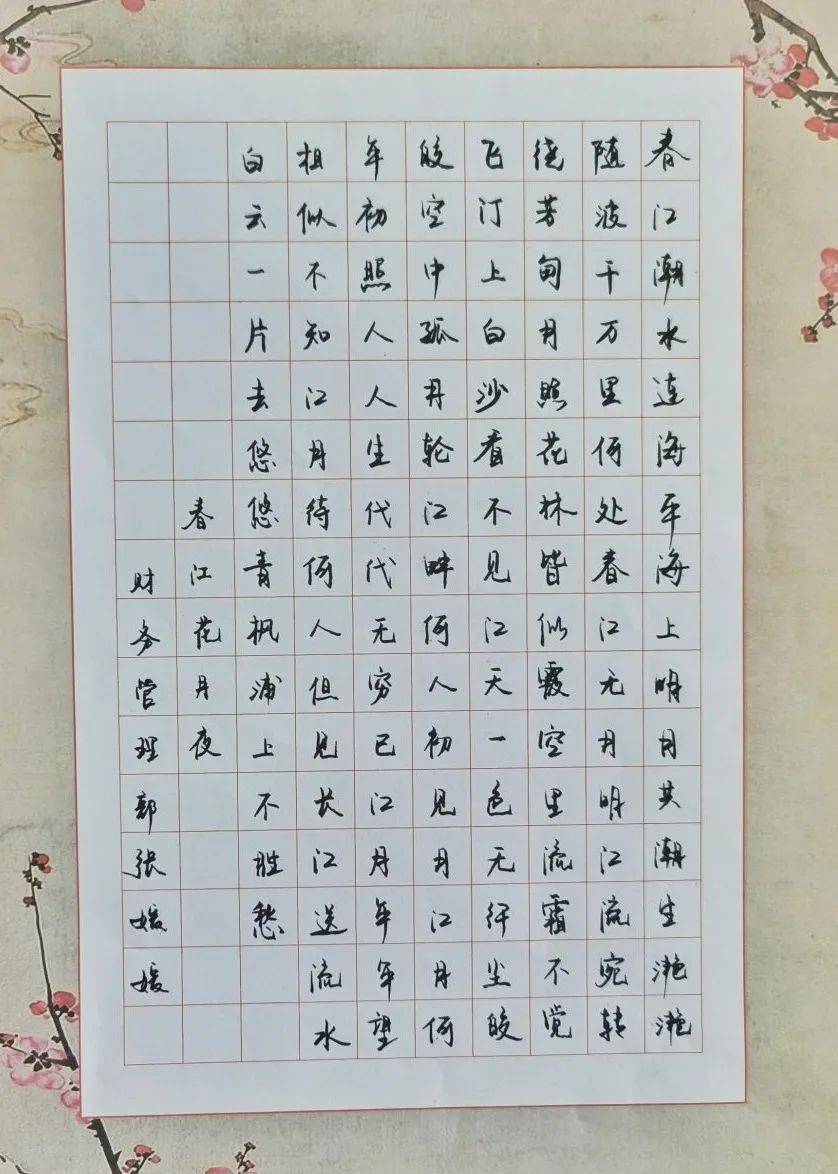 春江潮水连海平海上明月共潮生滟滟
随波千万里何处春江无月明江流宛转
绕芳甸月照花林皆似霰空里流霜不觉
飞汀上白沙看不见江天一色无纤尘皎
皎空中孤月轮江畔何人初见月江月何
年初照人人生代代无穷已江月年年望
相似不知江月待何人但见长江送流水
白云一片去悠悠青枫浦上不胜愁
春江花月夜
财务管理部张媛媛